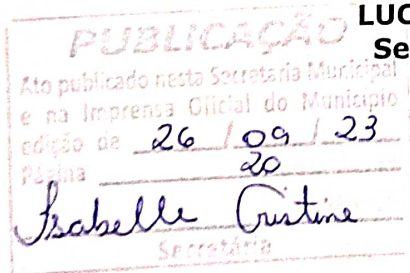 LUC
Se
PUBLICAÇÃO
Ato publicado nesta Secretaria Municipal
e na Imprensa Oficial do Município
edição de 26 / 09 / 23
Página 20
Isabelle Cristine
Secretária